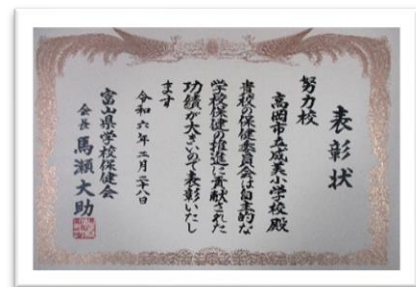 表彰状
努力校
高岡市立成美小学校殿
貴校の保健委員会は自主的な
学校保健の推進に貢献された
功績が大きいので表彰いたし
ます
令和六年二月二八日
富山県学校保健会
会長 馬瀬大助